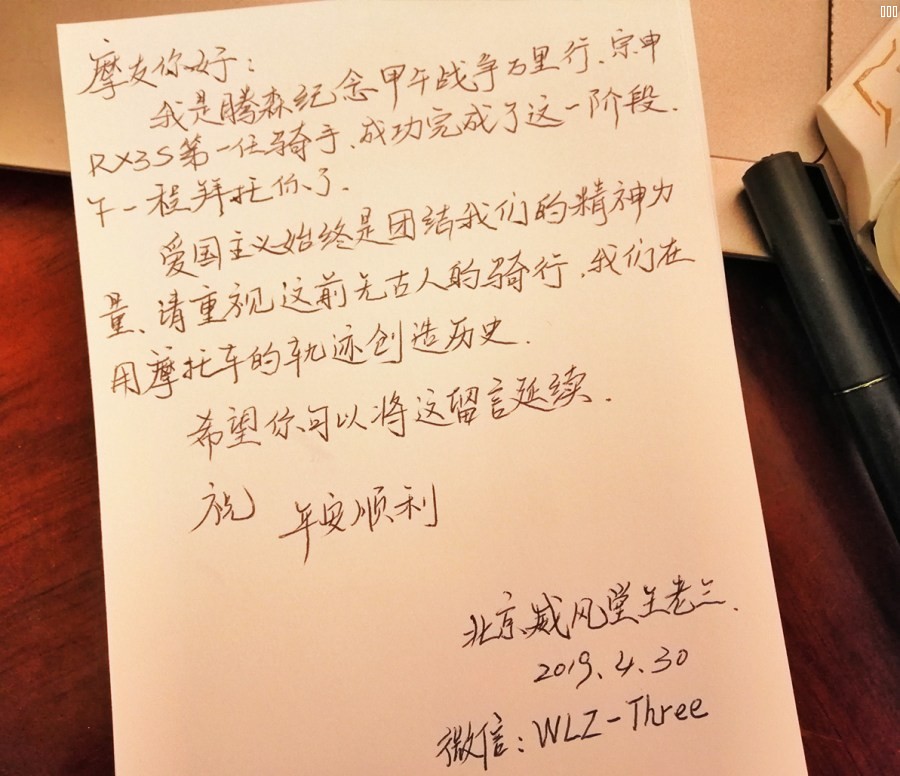 摩友你好：
我是腾森纪念甲午战争万里行、宗申
RX3S第一任骑手、成功完成了这一阶段.
下一程拜托你了.
爱国主义始终是团结我们的精神力
量、请重视这前无古人的骑行，我们在
用摩托车的轨迹创造历史.
希望你可以将这留言延续.
祝 平安顺利
北京威风堂王老三.
2019.4.30
微信：WLZ-Three